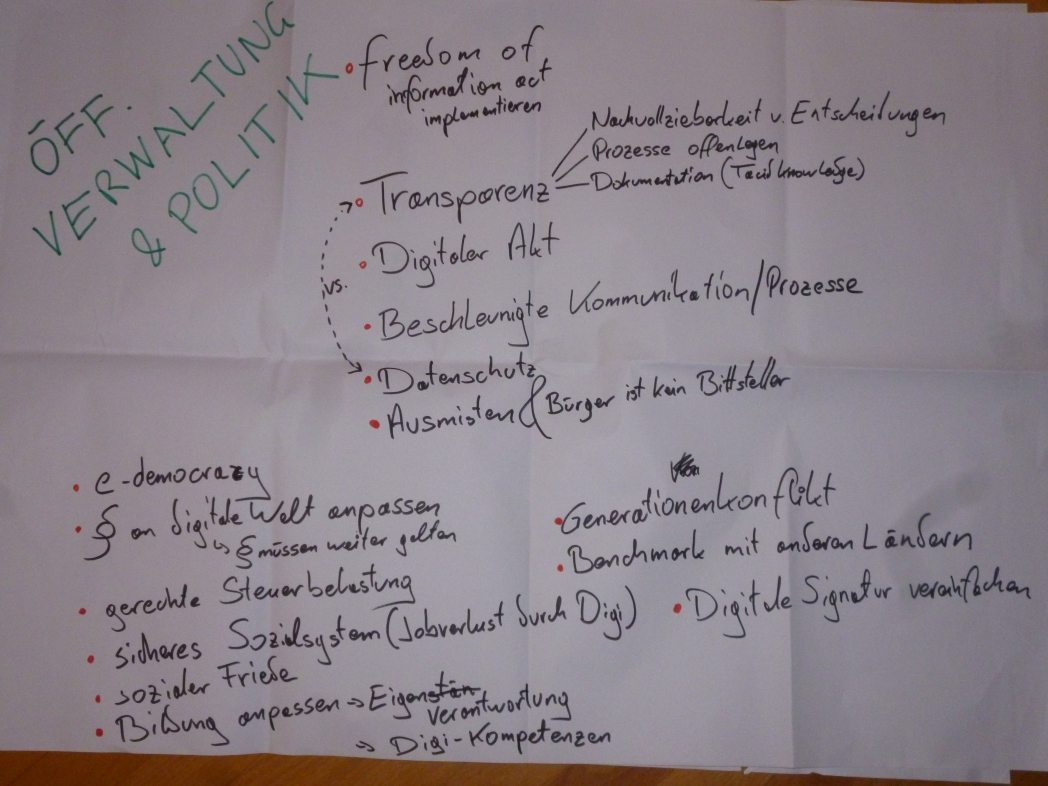 ÖFF.
VERWALTUNG
& POLITIK
• freedom of
information act
implementieren
• Transparenz
Nachvollziehbarkeit v. Entscheidungen
Prozesse offenlegen
Dokumentation (Tacit knowledge)
• Digitaler Akt
vs.
• Beschleunigte Kommunikation/Prozesse
• Datenschutz
• Ausmisten & Bürger ist kein Bittsteller
• e-democrazy
• § an digitale Welt anpassen
↳ § müssen weiter gelten
• gerechte Steuerbelastung
• sicheres Sozialsystem (Jobverlust durch Digi)
• sozialer Friede
• Bildung anpassen → Eigen
verantwortung
→ Digi-Kompetenzen
• Generationenkonflikt
• Benchmark mit anderen Ländern
• Digitale Signatur vereinfachen